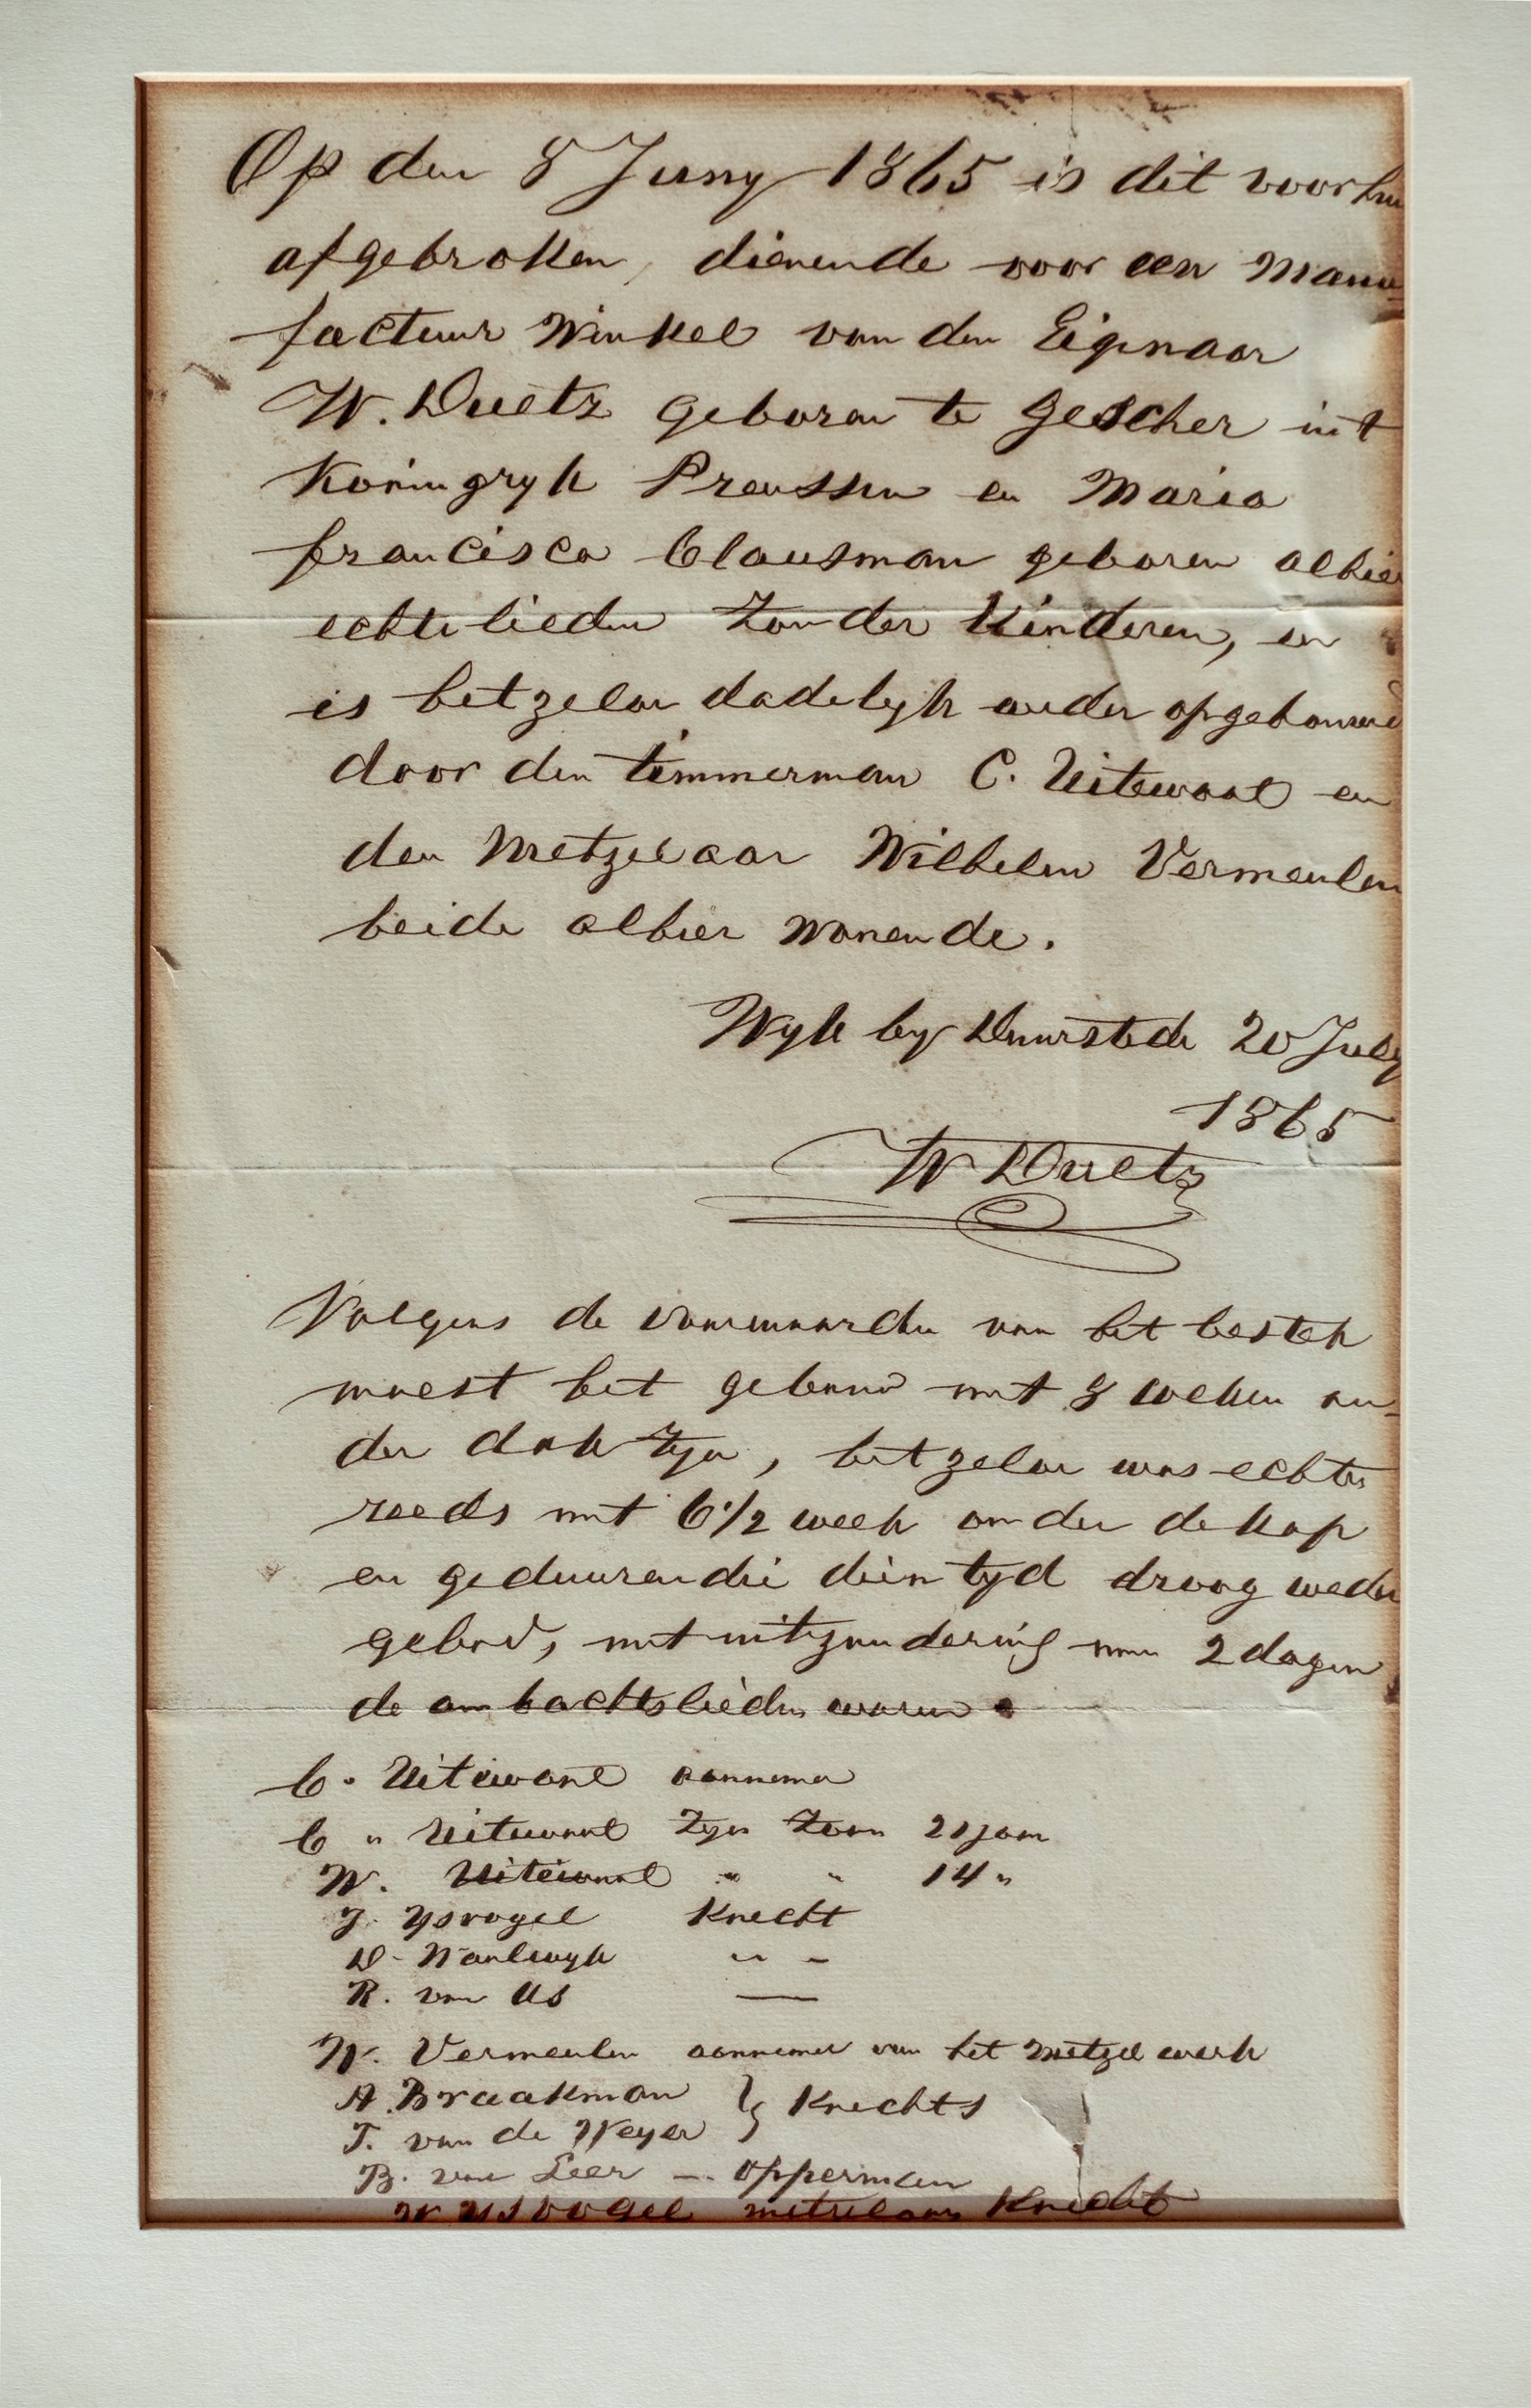 Op den 8 Juny 1865 is dit voorhui
afgebroken, dienende voor een Manu=
factuur Winkel van den Eigenaar
W. Duetz geboren te Gescher in t
Koningryk Preussen en Maria
francisca Clausman geboren alhier
echtelieden zonder Kinderen, en
is hetzelve dadelyk weder opgebouwd
door den timmerman C. Uitewaal en
den Metzelaar Wilhelm Vermeulen
beide alhier wonende.
Wyk by Duurstede 20 July
1865
W Duetz
Volgens de voorwaarden van het bestek
moest het gebouw met 8 weken on=
der dak zyn, hetzelve was echter
reeds met 6 1/2 week onder de kap
en geduurende dien tyd droog weder
gehad, met uitzondering van 2 dagen
de ambachtslieden waren
C. Uitewaal aannemer
C " Uitewaal zyn zoon 21 jaar
W. Uitewaal " " 14 "
J. Ysvogel Knecht
D. Nanlwyk " "
R. van Us —
W. Vermeulen aannemer van het metzelwerk
A. Braakman } Knechts
T. van de Weyer
B. van Leer — opperman
W Ysvogel metselaars Knecht